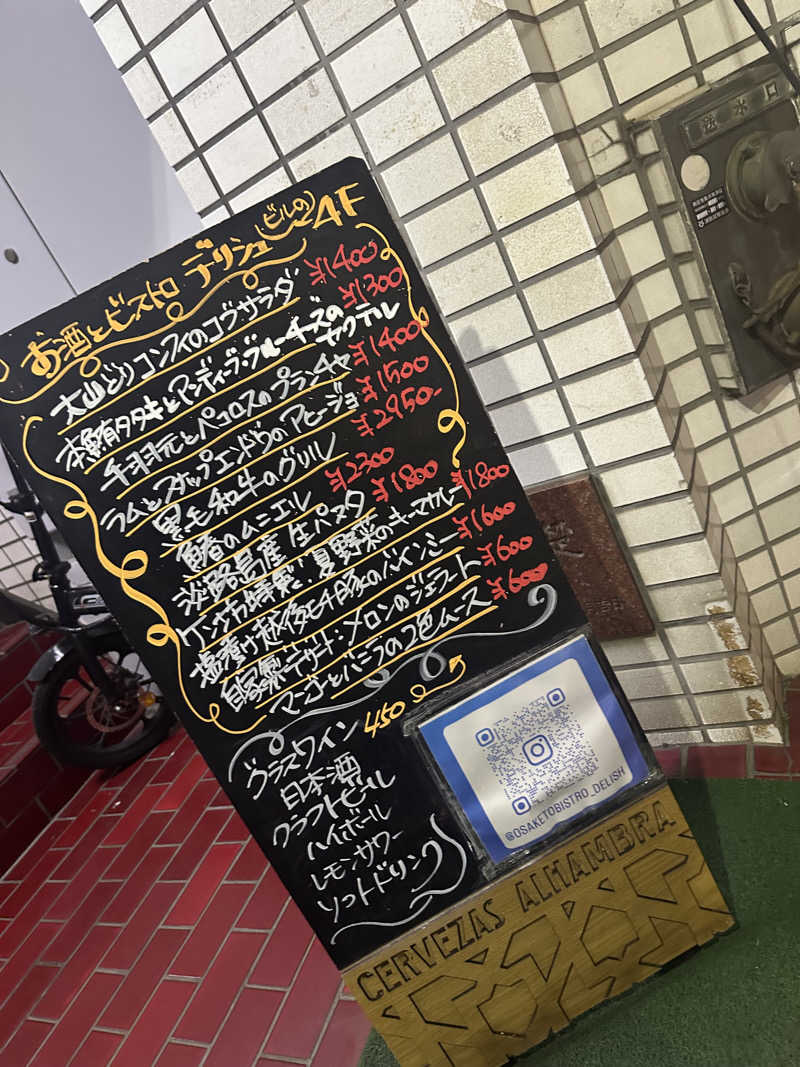 お酒とビストロ デリシュ ビルの 4F
大山どりコンフィのコブサラダ ¥1400
本鮪タタキとアンディーブ・ブルーチーズのカクテル ¥1300
とペコロスのプランチャ ¥1400
ラムとスナップエンドウのアヒージョ ¥1500
黒毛和牛のグリル ¥2950-
のムニエル ¥2300
淡路島産 生パスタ ¥1800
特製!夏野菜のキーマカレー ¥1800
塩漬け越後もち豚のバインミー ¥1600
自家製デザート:メロンのジェラート ¥600
マンゴとバニラの2色ムース ¥600
グラスワイン 450
日本酒
クラフトビール
ハイボール
レモンサワー
ソフトドリンク
@OSAKETOBISTRO_DELISH
CERVEZAS ALHAMBRA
送水口